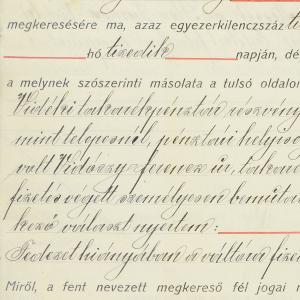 megkeresésére ma, azaz egyezerkilenczszáz ti
hó tizedik napján, dé
a melynek szószerinti másolata a tulsó oldalon
Vidéki takarékpénztár részvény
mint telepesnél, pénztári helyisé
volt Vidóczy Ferencz úr, takaré
fizetés végett személyesen bemuta
kező választ nyertem:
Fedezet hiányában a váltóra fize
Miről, a fent nevezett megkereső fél jogai m